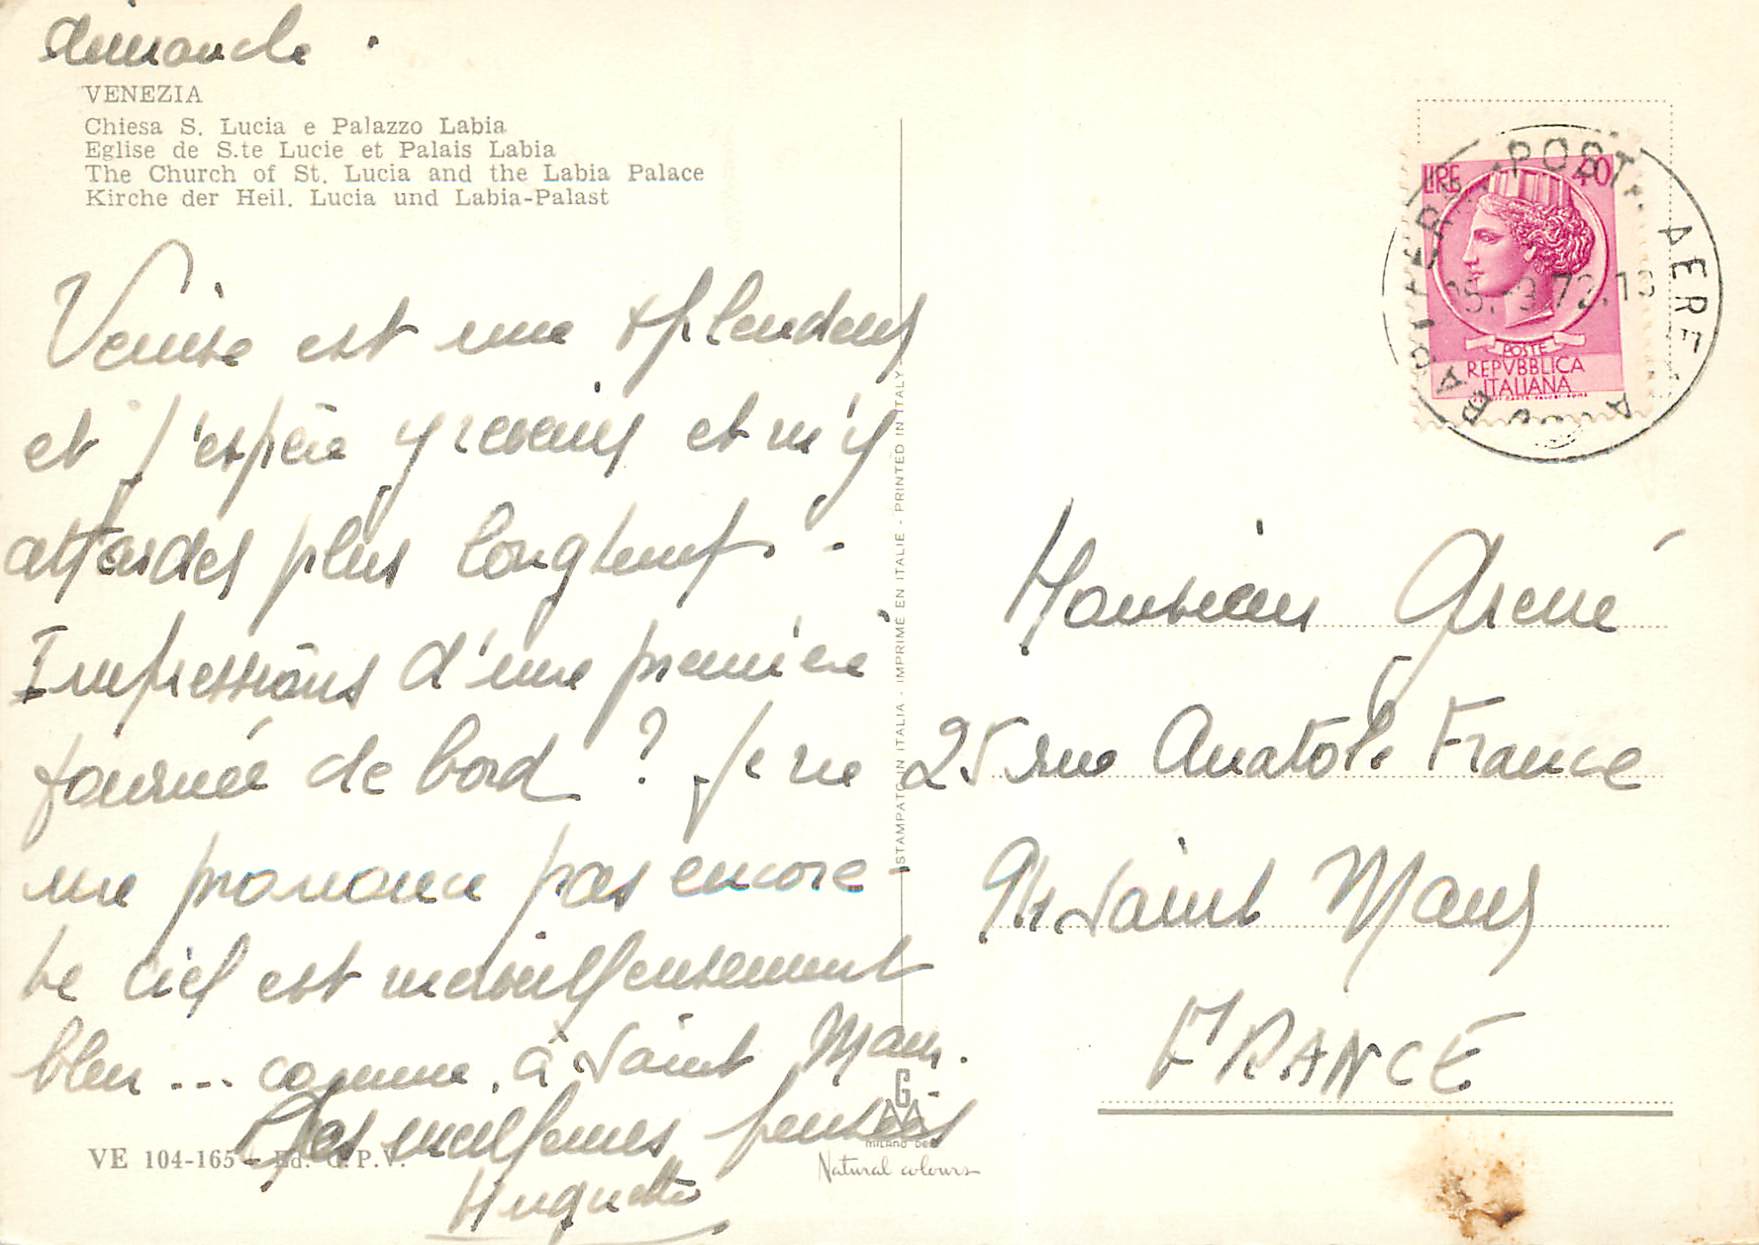 dimanche.
VENEZIA
Chiesa S. Lucia e Palazzo Labia
Eglise de S.te Lucie et Palais Labia
The Church of St. Lucia and the Labia Palace
Kirche der Heil. Lucia und Labia-Palast
Venise est une splendeur
et j'espère y revenir et m'y
attarder plus longtemps.-
Impressions d'une première
journée de bord ? Je ne
me prononce pas encore -
Le ciel est merveilleusement
bleu ... comme à Saint Maur.
Mes meilleures pensées
Huguette
VE 104-165 - Ed. G.P.V.
STAMPATO IN ITALIA - IMPRIMÉ EN ITALIE - PRINTED IN ITALY
MILANO
Natural colours
LIRE 40
POSTE
REPVBBLICA
ITALIANA
POST. AEREA
72.18
Monsieur
25 rue Anatole France
94 Saint Maur
FRANCE